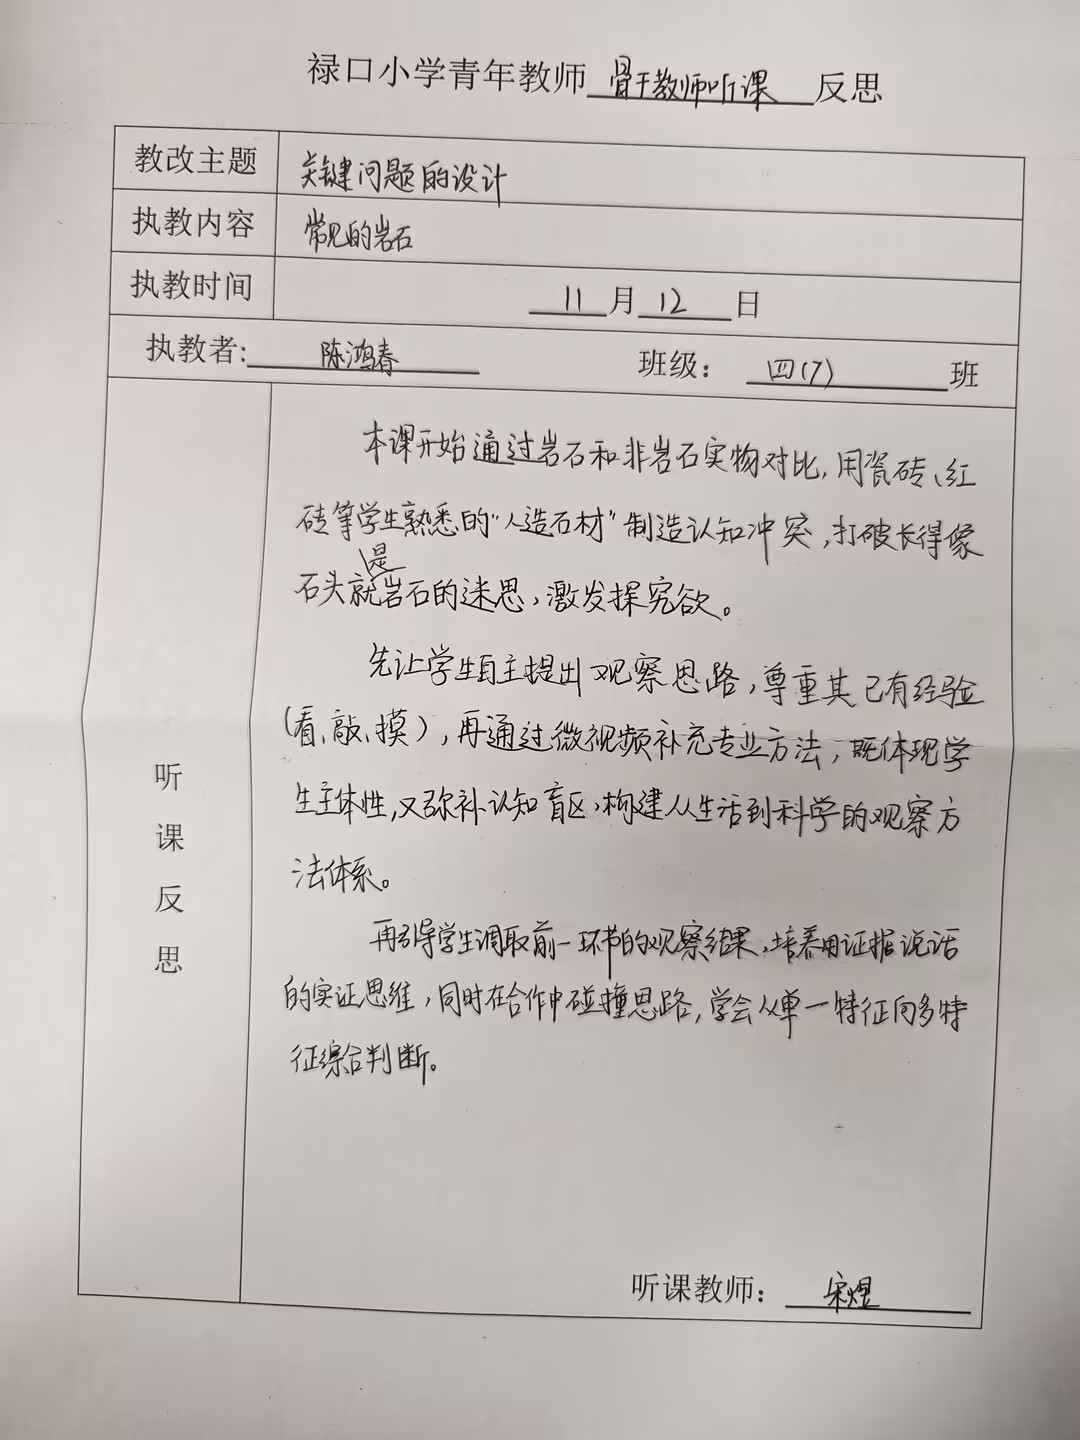 禄口小学青年教师 骨干教师听课 反思
教改主题 关键问题的设计
执教内容 常见的岩石
执教时间 11月12日
执教者: 陈鸿春 班级: 四(7) 班
听课反思
本课开始通过岩石和非岩石实物对比,用瓷砖、红
砖等学生熟悉的“人造石材”制造认知冲突,打破长得像
石头就是岩石的迷思,激发探究欲。
先让学生自主提出观察思路,尊重其已有经验
(看、敲、摸),再通过微视频补充专业方法,既体现学
生主体性,又弥补认知盲区,构建从生活到科学的观察方
法体系。
再引导学生调取前一环节的观察结果,培养用证据说话
的实证思维,同时在合作中碰撞思路,学会从单一特征向多特
征综合判断。
听课教师: 宋煜